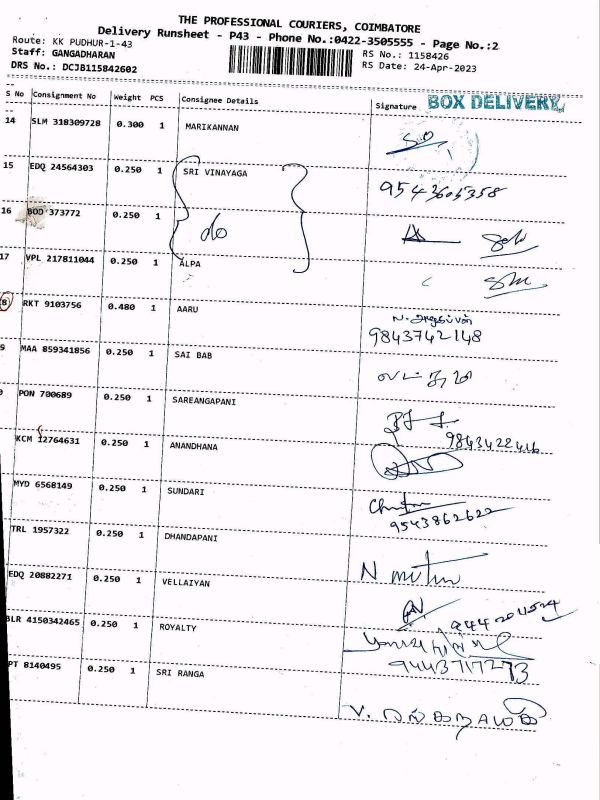 THE PROFESSIONAL COURIERS, COIMBATORE
Delivery Runsheet - P43 - Phone No.:0422-3505555 - Page No.:2
Route: KK PUDHUR-1-43
RS No.: 1158426
Staff: GANGADHARAN
RS Date: 24-Apr-2023
DRS No.: DCJB115842602
S No Consignment No Weight PCS Consignee Details Signature BOX DELIVERY
14 SLM 318309728 0.300 1 MARIKANNAN
15 EDQ 24564303 0.250 1 SRI VINAYAGA 9543605358
16 BOD 373772 0.250 1 do
17 VPL 217811044 0.250 1 ALPA
8 RKT 9103756 0.480 1 AARU
9843742148
9 MAA 859341856 0.250 1 SAI BAB
0 PON 700689 0.250 1 SAREANGAPANI
9843422416
KCM 12764631 0.250 1 ANANDHANA
MYD 6568149 0.250 1 SUNDARI
9543862622
TRL 1957322 0.250 1 DHANDAPANI N muthu
EDQ 20882271 0.250 1 VELLAIYAN
BLR 4150342465 0.250 1 ROYALTY
9443717273
PT 8140495 0.250 1 SRI RANGA